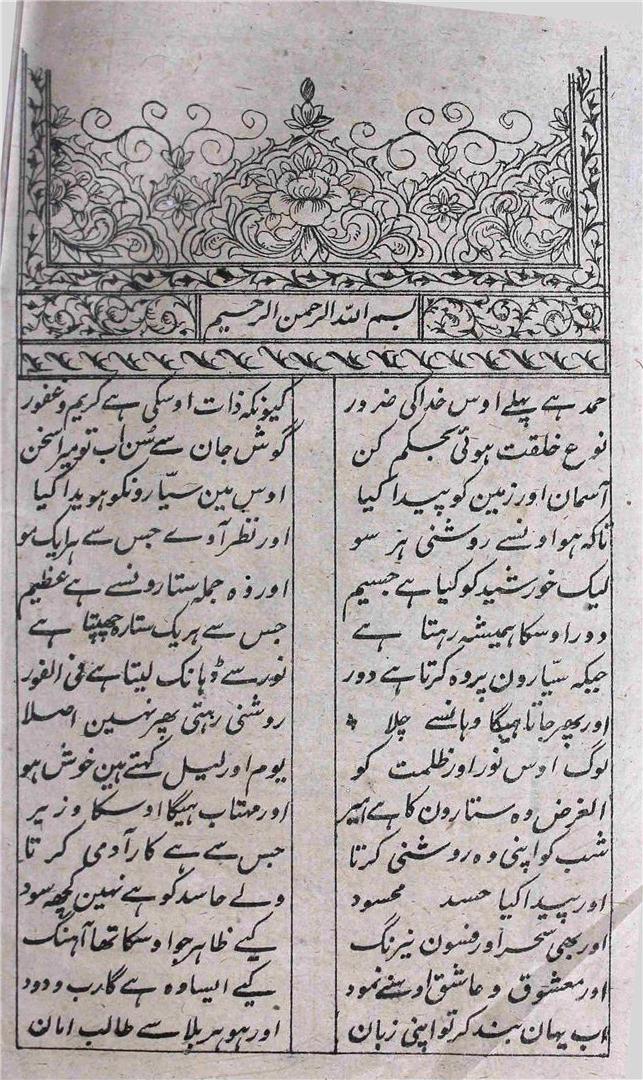 بسم اللہ الرحمن الرحیم
حمد ہے پہلے اوس خدا کی ضرور کیونکہ ذات اوسکی ہے کریم و غفور
نوع خلقت ہوئی بحکم کن گوش جان سے سن اب تو میرا سخن
آسمان اور زمین کو پیدا کیا اوس مین سیّارونکو ہویدا کیا
تاکہ ہو اونسے روشنی ہر سو اور نظر آوے جس سے ہر ایک مو
لیک خورشید کو کیا ہے جسیم اور وہ جملہ ستارونسے ہے عظیم
دور اوسکا ہمیشہ رہتا ہے جس سے ہر یک ستارہ چھپتا ہے
جبکہ سیّارون پر وہ کرتا ہے دور نور سے ڈہانک لیتا ہے فی الفور
اور پھر جاتا ہیگا وہانسے چلا روشنی رہتی پھر نہین اصلا
لوگ اوس نور اور ظلمت کو یوم اور لیل کہتے ہین خوش ہو
الغرض وہ ستارون کا ہے امیر اور مہتاب ہیگا اوسکا وزیر
شب کو اپنی وہ روشنی کرتا جس سے ہے کار آدمی کرتا
اور پیدا کیا حسد محسود ولے حاسد کو ہے نہین کچھ سود
اور بھی سحر اور فسون نیرنگ کیے ظاہر جو اوسکا تھا آہنگ
اور معشوق و عاشق اوسنے نمود کیے ایسا وہ ہے گا رب ودود
اب یہان بند کر تو اپنی زبان اور ہو ہر بلا سے طالب امان